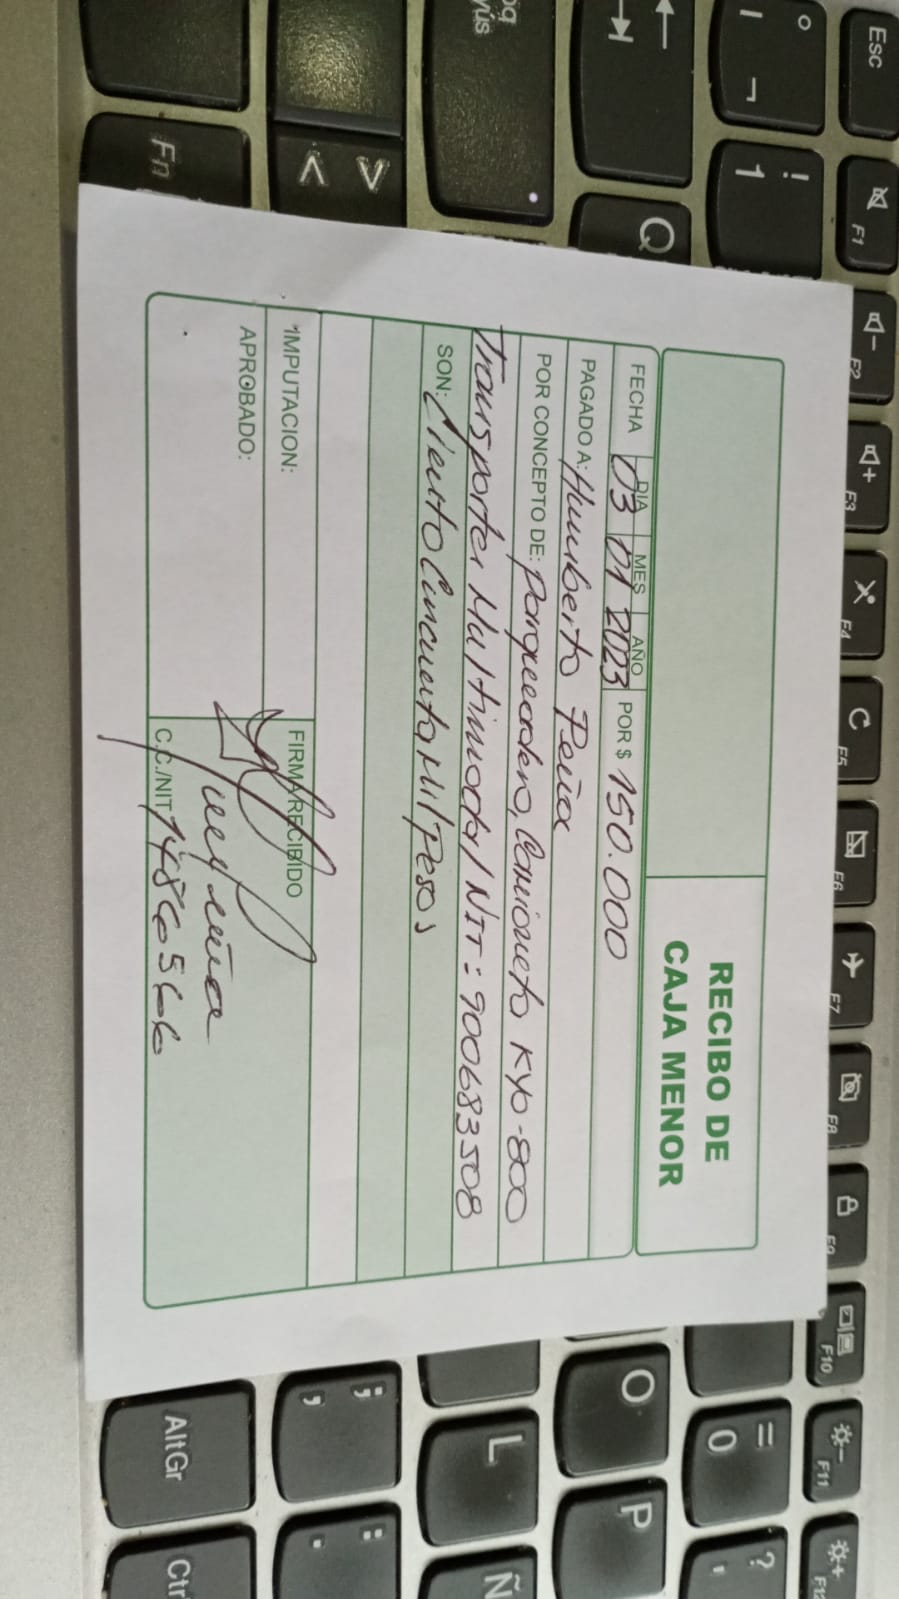 RECIBO DE
CAJA MENOR
FECHA DIA 03 MES 01 AÑO 2023 POR $ 150.000
PAGADO A: Humberto Peña
POR CONCEPTO DE: parqueadero, Camioneta KYO-800
Transporter Multimodal NIT: 900683508
SON: Ciento Cincuenta Mil Pesos
IMPUTACION:
APROBADO:
FIRMA RECIBIDO
C.C./NIT
Esc
F1
F2
F3
F4
F5
F6
F7
F8
F9
F10
F11
F12
° | ¬
! 1
= 0
? '
Q
O
P
L
Ñ
; ,
: .
< >
Fn
AltGr
Ctr